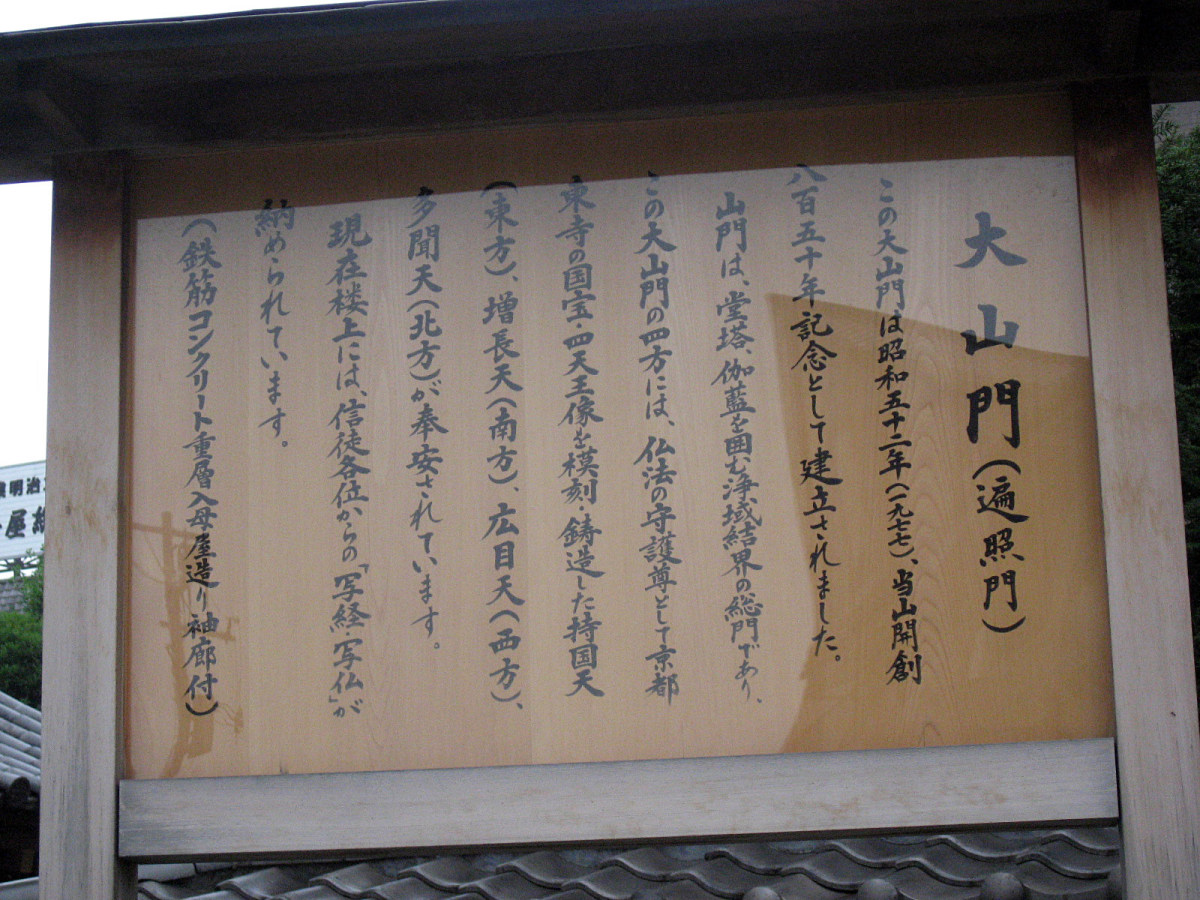 大山門(遍照門)
この大山門は昭和五十二年(一九七七)、当山開創
八百五十年記念として建立されました。
山門は、堂塔、伽藍を囲む浄域結界の総門であり、
この大山門の四方には、仏法の守護尊として京都
東寺の国宝・四天王像を模刻・鋳造した持国天
(東方)、増長天(南方)、広目天(西方)、
多聞天(北方)が奉安されています。
現在楼上には、信徒各位からの「写経・写仏」が
納められています。
(鉄筋コンクリート重層入母屋造り袖廊付)
明治
屋